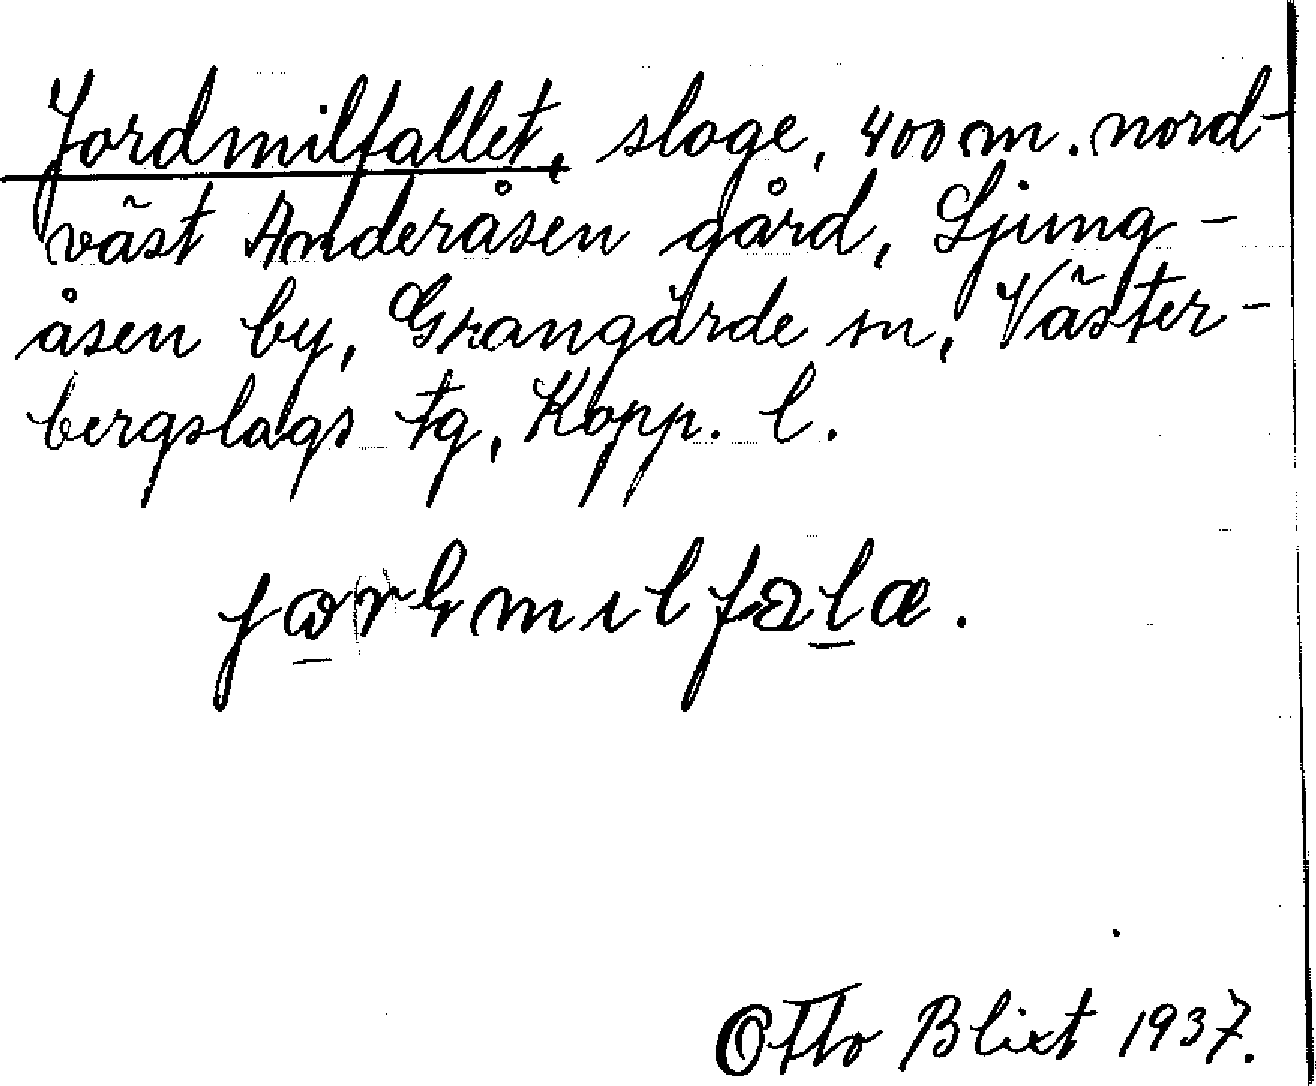 Jordmilfallet, sloge, 400 m. nord-
väst Anderåsen gård, Ljung-
åsen by, Grangärde sn, Väster-
bergslags tg, Kopp. l.
Otto Blixt 1937.